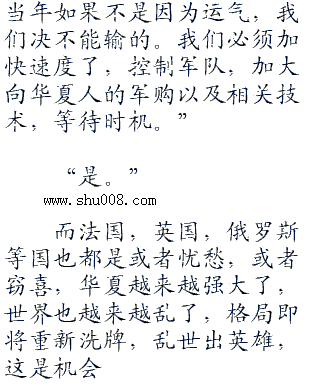 当年如果不是因为运气，我
们决不能输的。我们必须加
快速度了，控制军队，加大
向华夏人的军购以及相关技
术，等待时机。”
“是。”
www.shu008.com
而法国，英国，俄罗斯
等国也都是或者忧愁，或者
窃喜，华夏越来越强大了，
世界也越来越乱了，格局即
将重新洗牌，乱世出英雄，
这是机会